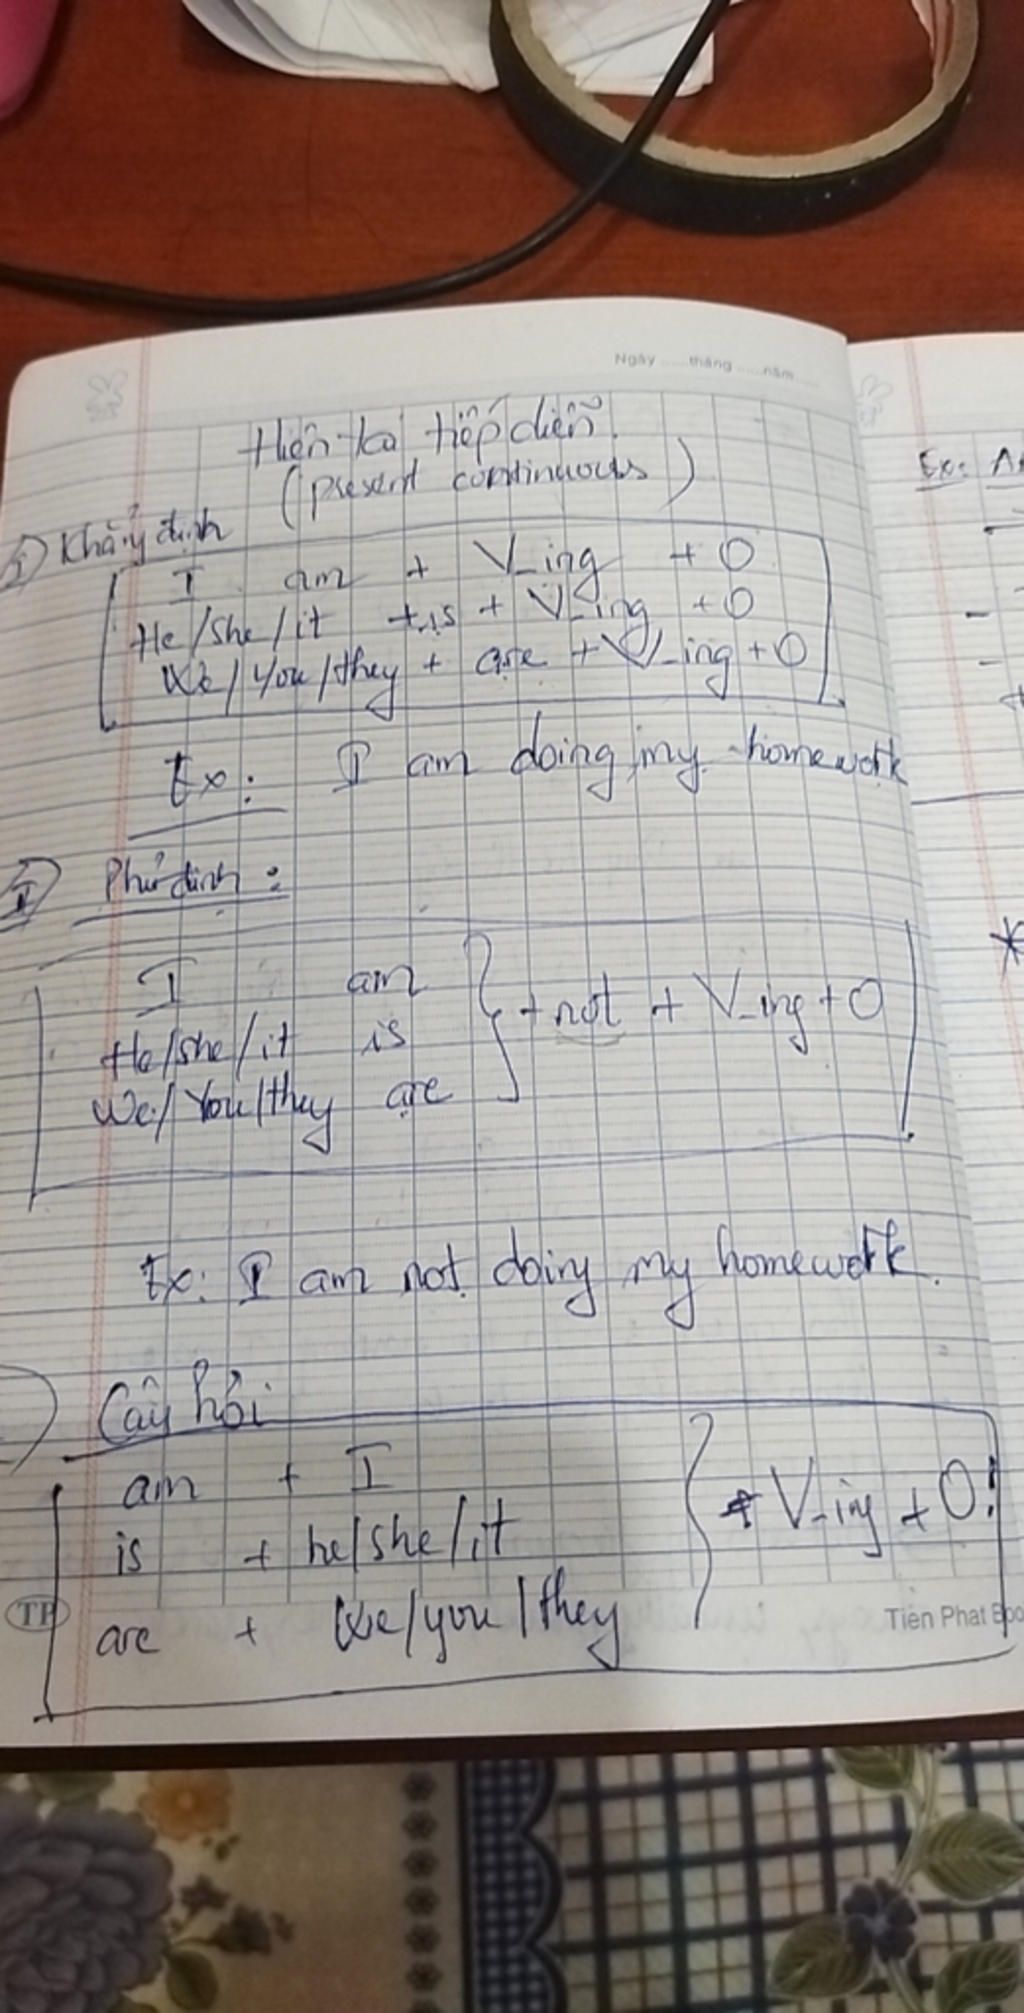 Ngày ......tháng ......năm ......
Hiện tại tiếp diễn.
(present continuous)
I) Khẳng định
I am + V_ing + O
He/she/it + is + V_ing + O
We/you/they + are + V_ing + O
Ex: I am doing my homework
II) Phủ định:
I am
He/she/it is
We/You/they are
+ not + V_ing + O
Ex: I am not doing my homework.
Câu hỏi
am + I
is + he/she/it
are + We/you/they
+ V-ing + O?
TP
Tiến Phát
Ex: